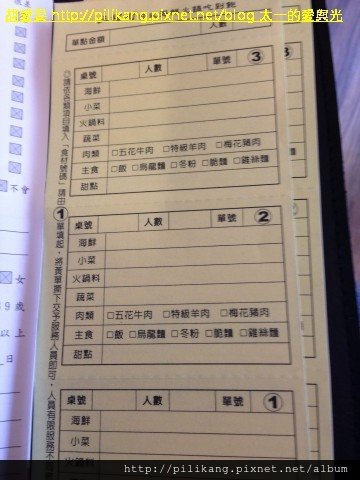 http://pilikang.pixnet.net/blog 太一的愛與光
火鍋吃到飽
單點金額
人數
桌號 人數 單號 ③
海鮮
小菜
火鍋料
蔬菜
肉類 □五花牛肉 □特級羊肉 □梅花豬肉
主食 □飯 □烏龍麵 □冬粉 □脆麵 □雞絲麵
甜點
桌號 人數 單號 ②
海鮮
小菜
火鍋料
蔬菜
肉類 □五花牛肉 □特級羊肉 □梅花豬肉
主食 □飯 □烏龍麵 □冬粉 □脆麵 □雞絲麵
甜點
桌號 人數 單號 ①
海鮮
小菜
火鍋料
◎請依各類項目填入「食材號碼」請由①單填起，將黃單撕下交予服務人員即可，人員有限服務不
不會
女
歲
以上
日
http://pilikang.pixnet.net/album